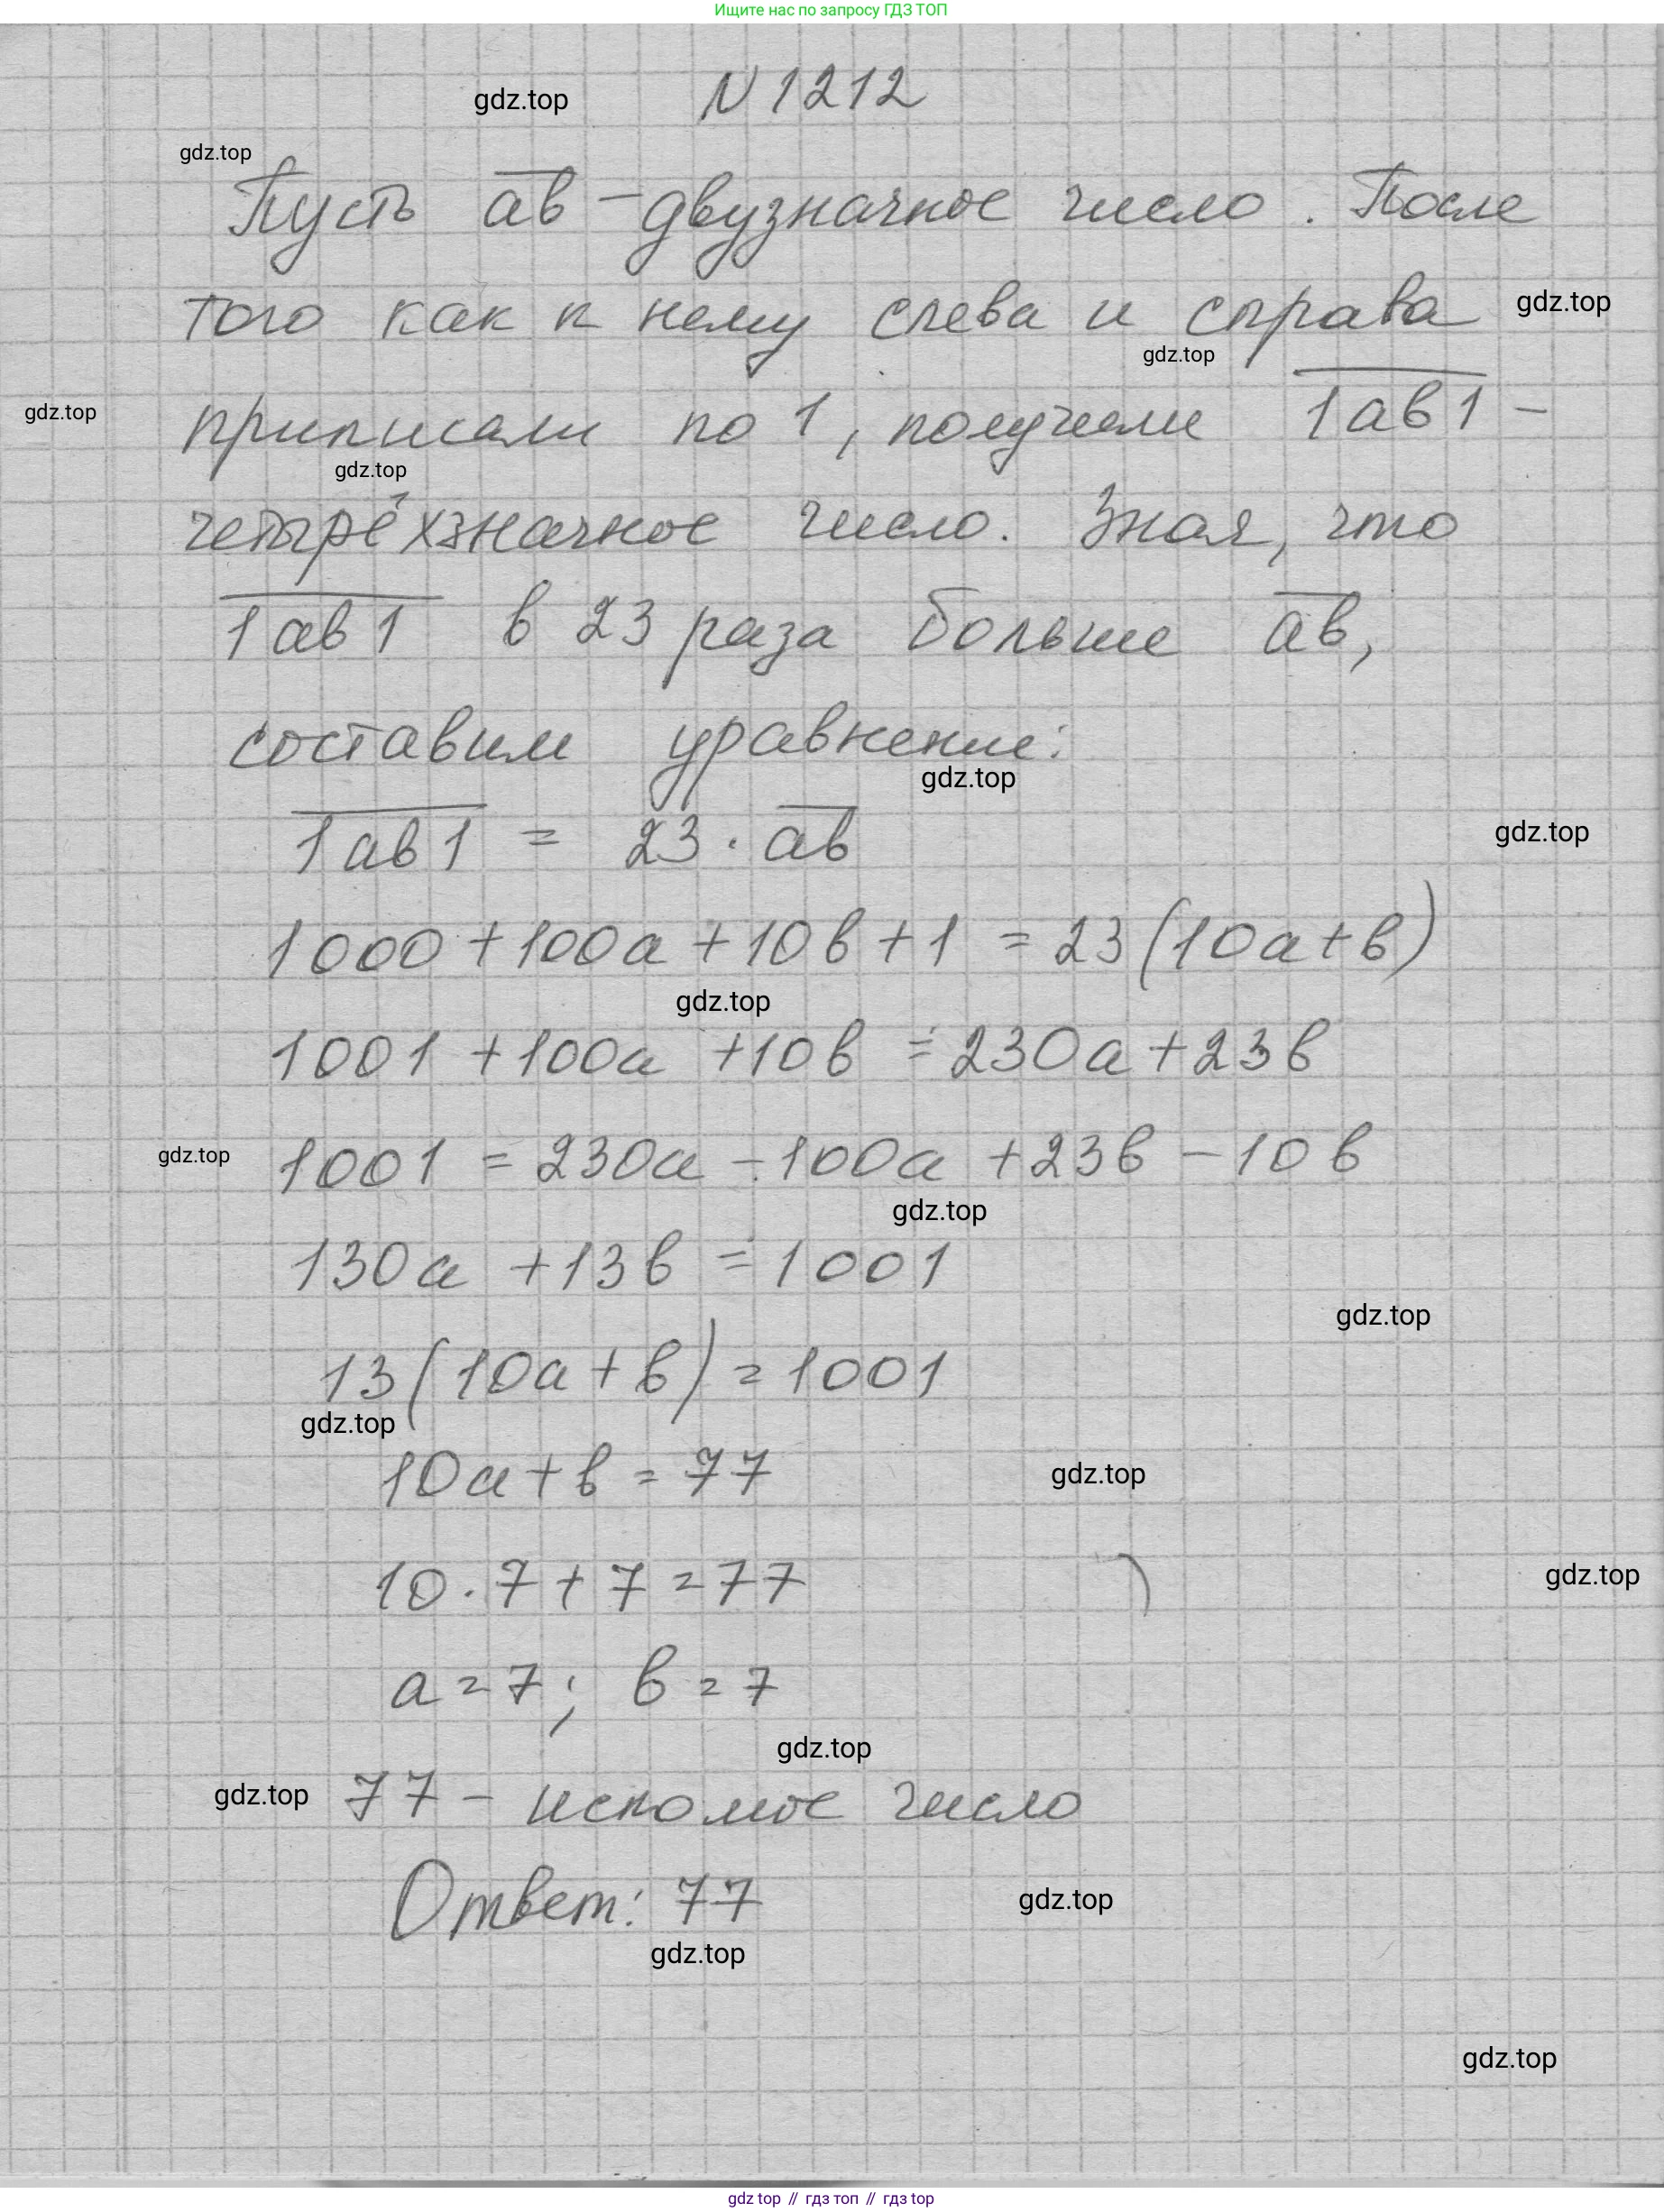 Ищите нас по запросу ГДЗ ТОП
gdz.top N 1212
gdz.top
Пусть ав – двузначное число. После
того как к нему слева и справа gdz.top
gdz.top
gdz.top приписали по 1, получили 1ав1 –
gdz.top
четырёхзначное число. Зная, что
1ав1 в 23 раза больше ав,
составим уравнение:
gdz.top
1ав1 = 23 · ав gdz.top
1000 + 100а + 10в + 1 = 23(10а + в)
gdz.top
1001 + 100а + 10в = 230а + 23в
gdz.top 1001 = 230а - 100а + 23в - 10в
gdz.top
130а + 13в = 1001
gdz.top
13(10а + в) = 1001
gdz.top
10а + в = 77 gdz.top
10 · 7 + 7 = 77 ) gdz.top
а = 7; в = 7
gdz.top
gdz.top 77 – искомое число
Ответ: 77 gdz.top
gdz.top
gdz.top
gdz top // гдз топ // gdz top